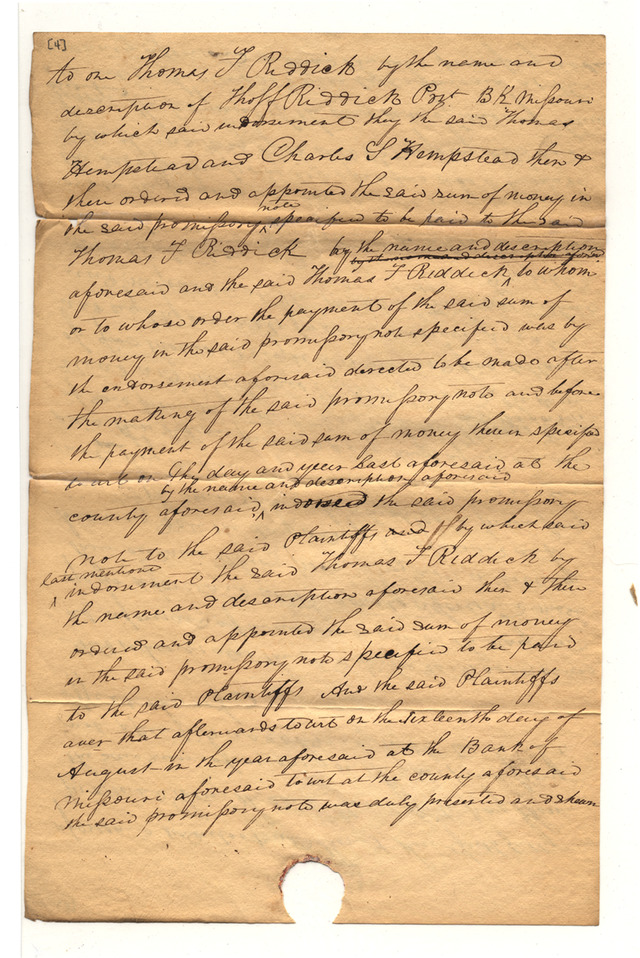 [4]
to one Thomas F Riddick by the name and
description of Thos F Riddick Prst BK Missouri
by which said indorsement they the said Thomas
Hempstead and Charles S Hempstead then &
there ordered and appointed the said sum of money in
the said promissory note specified to be paid to the said
Thomas F Riddick by the name and description
aforesaid and the said Thomas F Riddick to whom
or to whose order the payment of the said sum of
money in the said promissory note specified was by
the endorsement aforesaid directed to be made after
the making of the said promissory note and before
the payment of the said sum of money therein specified
to wit on the day and year last aforesaid at the
by the name and description aforesaid
county aforesaid indorsed the said promissory
note to the said Plaintiffs by which said
last mentioned
indorsement the said Thomas F Riddick by
the name and description aforesaid then & there
ordered and appointed the said sum of money
in the said promissory note specified to be paid
to the said Plaintiffs And the said Plaintiffs
aver that afterwards to wit on the sixteenth day of
August in the year aforesaid at the Bank of
Missouri aforesaid to wit at the county aforesaid
the said promissory note was duly presented and shewn